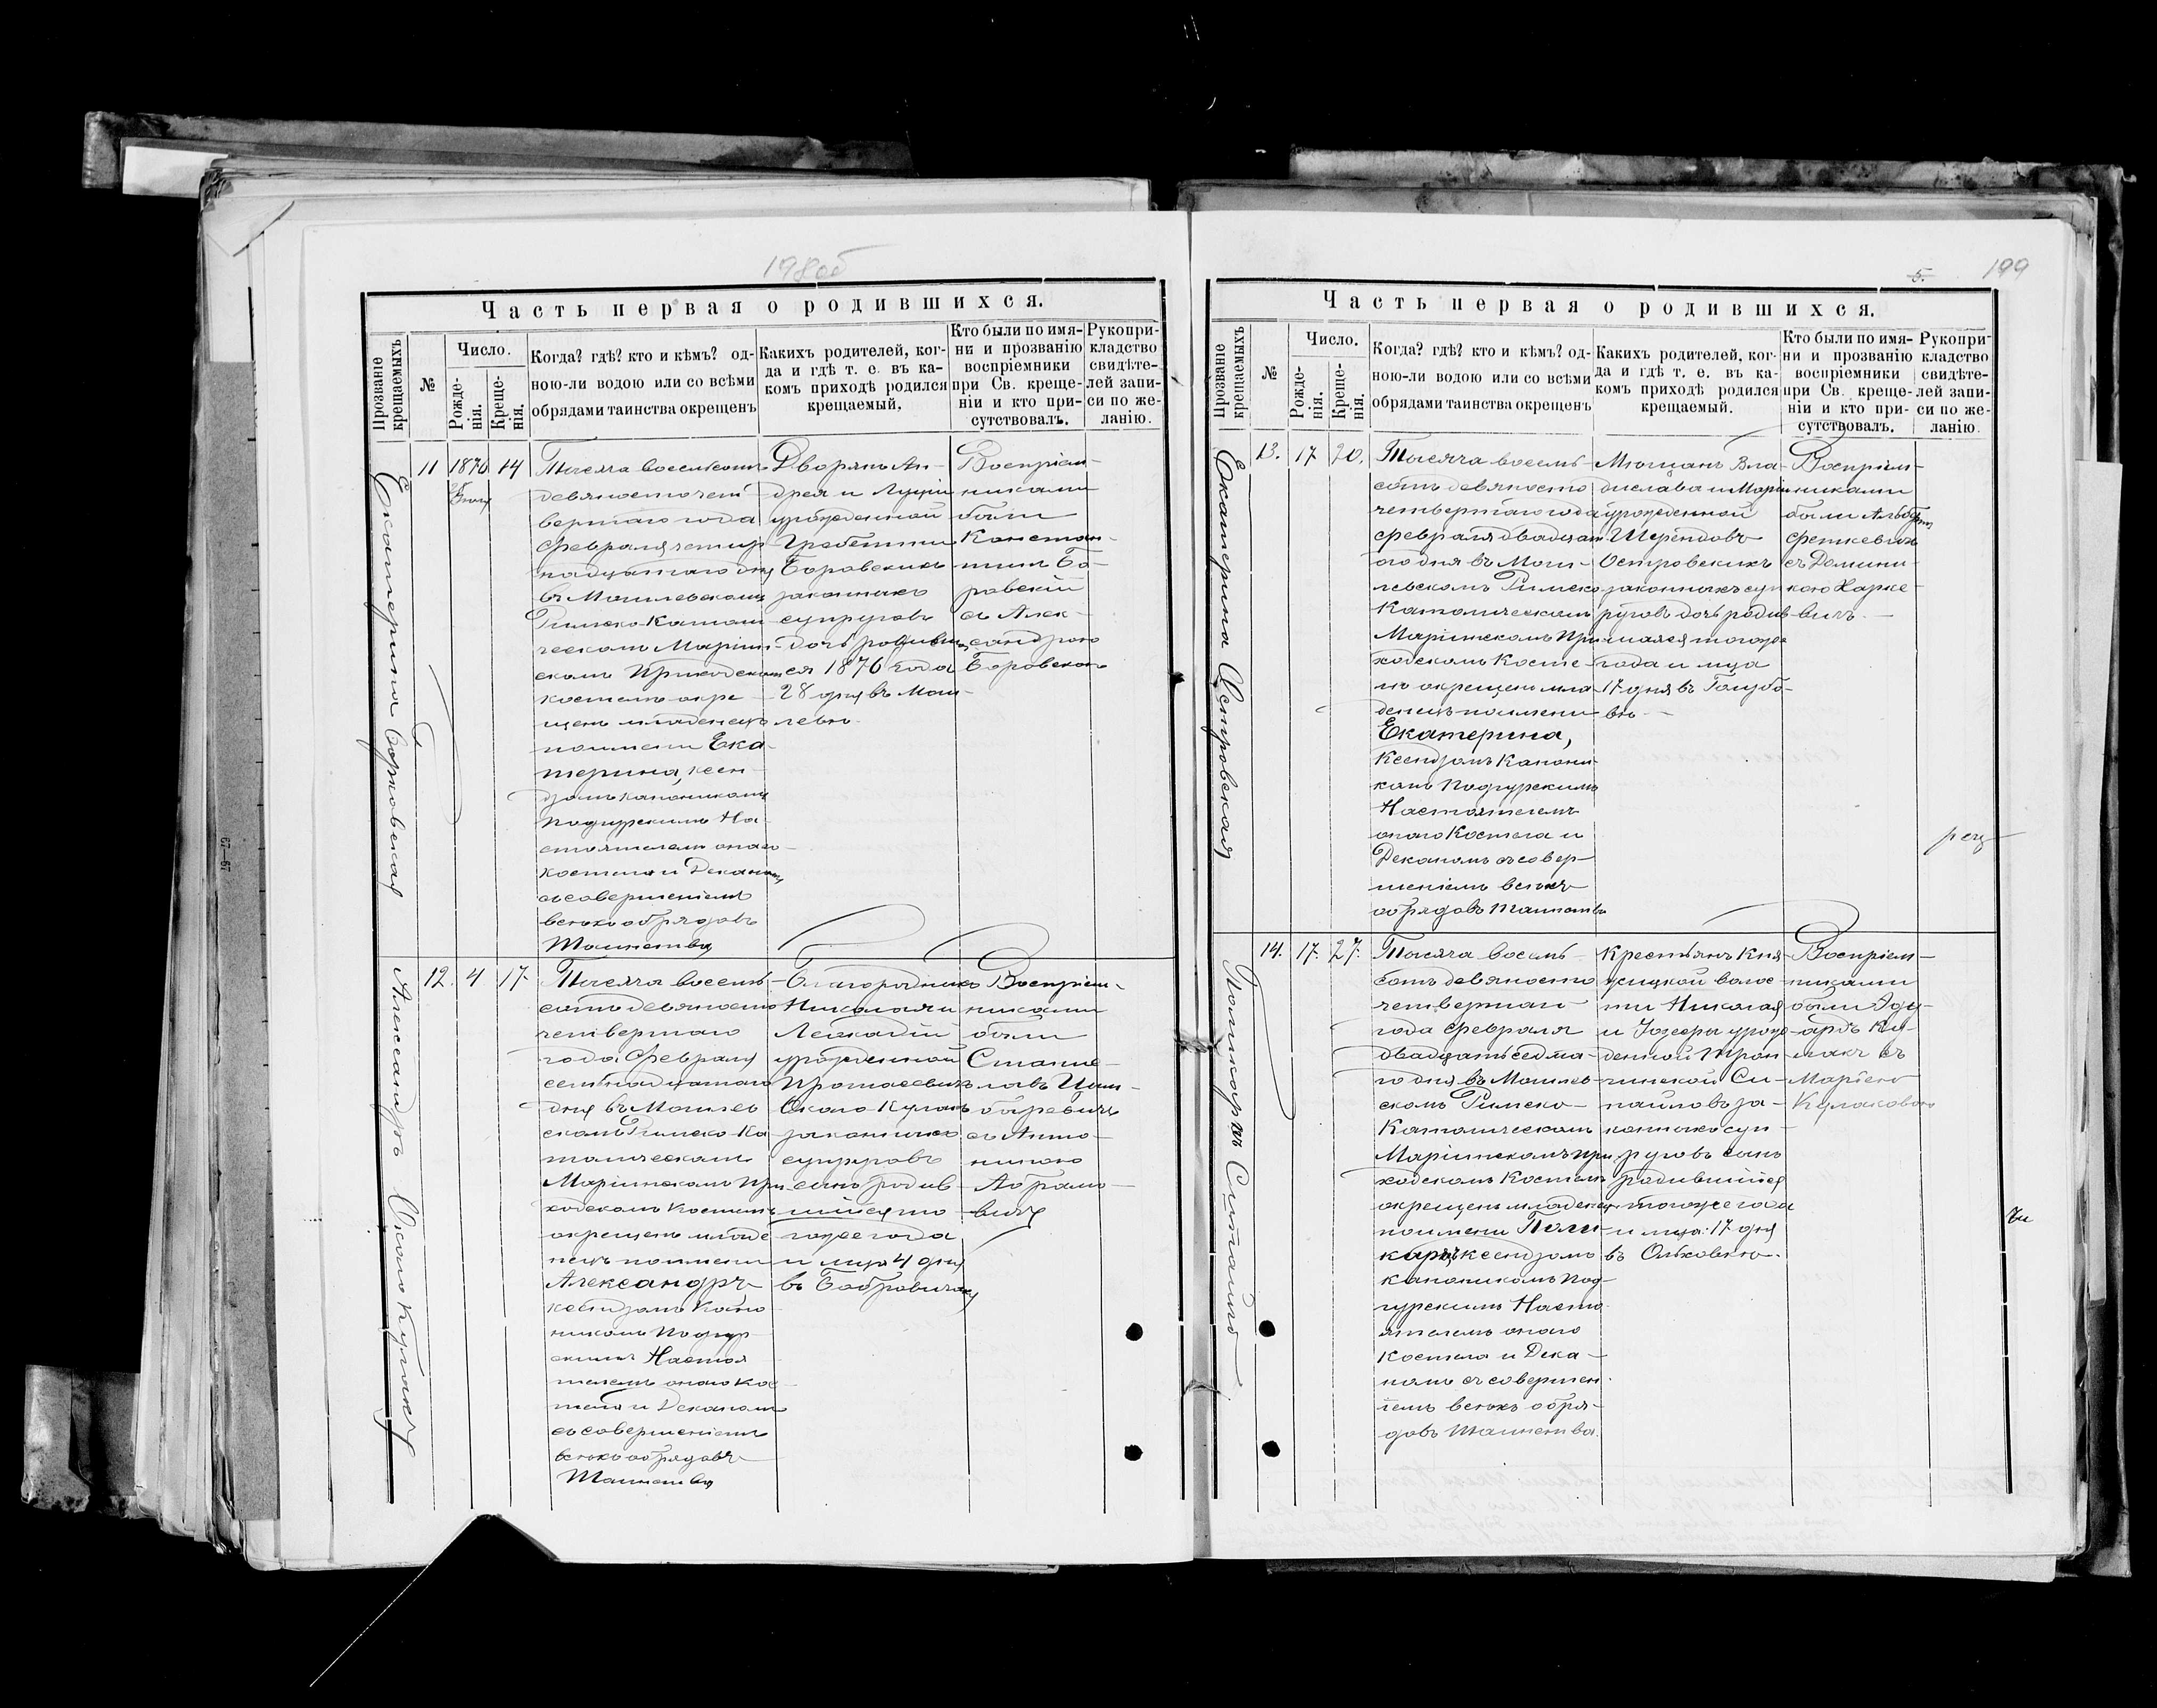 198об
Часть первая о родившихся.
Прозваніе крещаемыхъ
№
Число.
Рожде-
нія.
Креще-
нія.
Когда? гдѣ? кто и кѣмъ? од-
ною-ли водою или со всѣми
обрядами таинства окрещенъ
Какихъ родителей, ког-
да и гдѣ т. е. въ ка-
комъ приходѣ родился
крещаемый.
Кто были по имя-
ни и прозванію
воспріемники
при Св. креще-
ніи и кто при-
сутствовалъ.
Рукопри-
кладство
свидѣте-
лей запи-
си по же-
ланію.
Екатерина Боровская
11
1876
14
Тысяча восемьсотъ
девяносто чет
вертаго года
Февраля четыр
надцатаго дня
въ Могилевскомъ
Римско-Катол
ческомъ Маріин
скомъ Приходскомъ
костелѣ окре
щенъ младенецъ
по имени Ека-
терина, ксен-
дзомъ каноникомъ
Подгурскимъ На-
стоятелемъ онаго
костела и Деканомъ
съ совершеніемъ
всѣхъ обрядовъ
Таинства
Дворянъ Ан-
дрея и Луціи
урожденной
Боровскихъ
законныхъ
супруговъ
дочь родивша
ся 1876 года
28 дня въ Моги-
левѣ.
Воспріем-
никами
были
Констан-
тинъ Бо-
ровскій
съ Алек-
сандрою
Боровскою
Александръ Около Кулакъ
12.
4
17.
Тысяча восемь
сотъ девяносто
четвертаго
года Февраля
семнадцатаго
дня въ Могилев
скомъ Римско-Ка
толическомъ
Маріинскомъ При
ходскомъ Костелѣ
окрещенъ младе
нецъ по имени
Александръ
ксендзомъ Кано
никомъ Подгур
скимъ Настоя
телемъ онаго Кос
тела и Деканомъ
съ совершеніемъ
всѣхъ обрядовъ
Таинства
Благородныхъ
Николая и
Леокадіи
урожденной
Протасевичъ
Около Кулакъ
законныхъ
супруговъ
сынъ родив
шійся то
гоже года
и мца 4 дня
въ Бобровичахъ
Воспріем-
никами
были
Стани-
лавъ Цим-
баревичъ
съ Анто-
ниною
Абрамо-
вичъ
5.
199
Часть первая о родившихся.
Прозваніе крещаемыхъ
№
Число.
Рожде-
нія.
Креще-
нія.
Когда? гдѣ? кто и кѣмъ? од-
ною-ли водою или со всѣми
обрядами таинства окрещенъ
Какихъ родителей, ког-
да и гдѣ т. е. въ ка-
комъ приходѣ родился
крещаемый.
Кто были по имя-
ни и прозванію
воспріемники
при Св. креще-
ніи и кто при-
сутствовалъ.
Рукопри-
кладство
свидѣте-
лей запи-
си по же-
ланію.
Екатерина Островская
13.
17
20.
Тысяча восемь-
сотъ девяносто
четвертаго года
Февраля двадцат
ого дня въ Моги-
левскомъ Римско
Католическомъ
Маріинскомъ При
ходскомъ Косте-
лѣ окрещенъ мла
денецъ по имени
Екатерина,
Ксендзомъ Канони
комъ Подгурскимъ
Настоятелемъ
онаго Костела и
Деканомъ съ совер-
шеніемъ всѣхъ
обрядовъ таинства
Мѣщанъ Вла-
дислава и Маріи
урожденной
Островскихъ
законныхъ суп
руговъ дочь родив-
шаяся тогоже
года и мца
17 дня въ Голубо-
вкѣ.
Воспріем-
никами
были Альбертъ
съ Домини-
кою Харке-
вичъ.
Поликарпъ Сипайло
14.
17.
27.
Тысяча восемь
сотъ девяносто
четвертаго
года Февраля
двадцать седма-
го дня въ Могилев-
скомъ Римско-
Католическомъ
Маріинскомъ При
ходскомъ Костелѣ
окрещенъ младенецъ
по имени Поли-
карпъ, ксендзомъ
каноникомъ Под-
гурскимъ Насто
ятелемъ онаго
Костела и Дека-
номъ съ совершен
іемъ всѣхъ обря-
довъ таинства.
Крестьянъ Кня-
жицкой волос-
ти Николая
и Юзефы урож-
денной
Си-
пайловъ за-
конныхъ суп-
руговъ сынъ
родившійся
тогоже года
и мца 17 дня
въ Ольховкѣ.
Воспріем-
никами
были Эду-
ардъ Ку-
лакъ съ
Маріею
Кулаковою